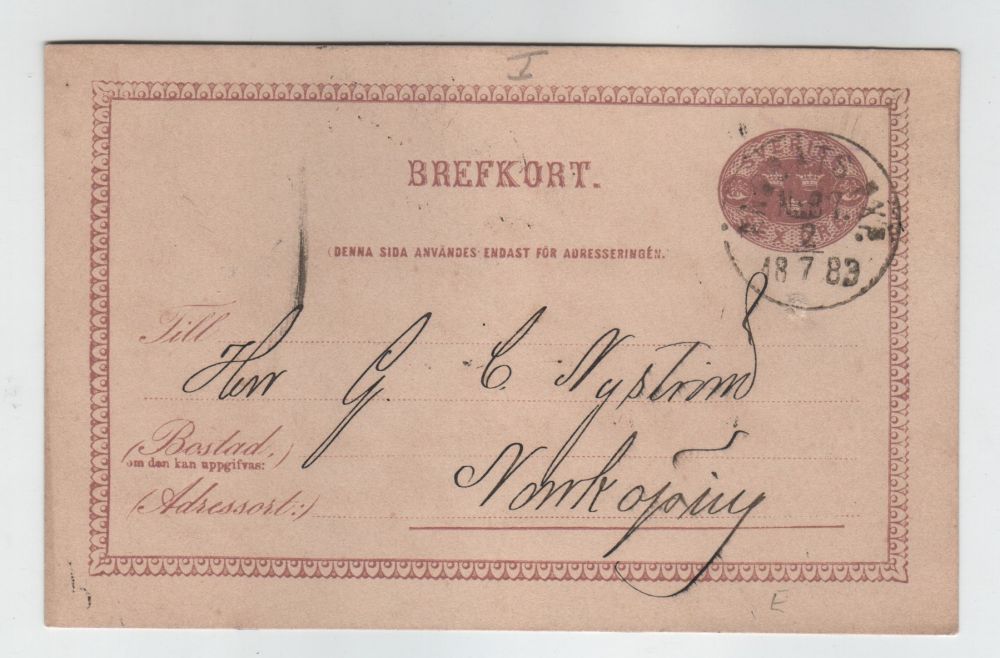 I
BREFKORT.
(DENNA SIDA ANVÄNDES ENDAST FÖR ADRESSERINGEN.
18 7 83
Till
Herr G. C. Nyström
(Bostad,)
om den kan uppgifvas:
Norrköping
(Adressort:)
E